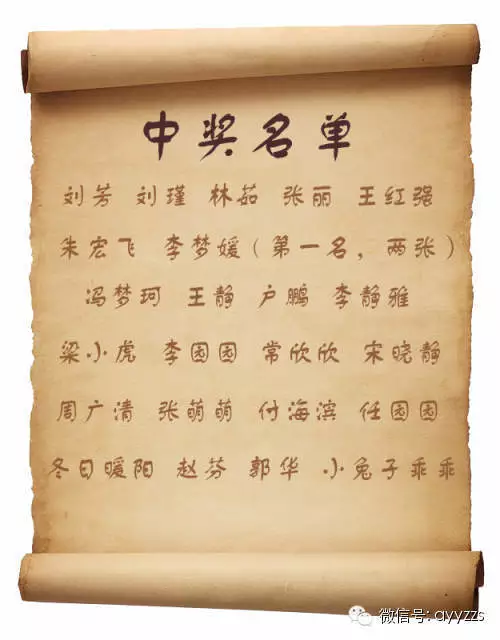 中奖名单
刘芳 刘瑾 林茹 张丽 王红强
朱宏飞 李梦媛（第一名，两张）
冯梦珂 王静 户鹏 李静雅
梁小虎 李园园 常欣欣 宋晓静
周广清 张萌萌 付海滨 任园园
冬日暖阳 赵芬 郭华 小兔子乖乖
微信号: qyyzzs